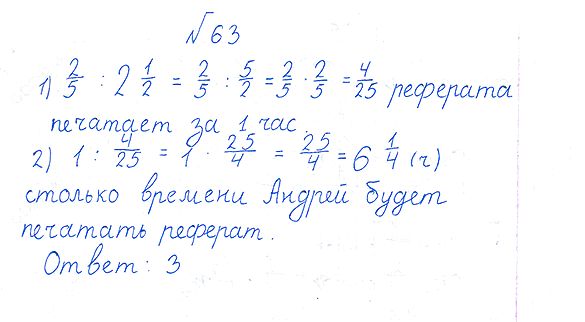 №63
1) 2/5 : 2 1/2 = 2/5 : 5/2 = 2/5 · 2/5 = 4/25 реферата
печатает за 1 час.
2) 1 : 4/25 = 1 · 25/4 = 25/4 = 6 1/4 (ч)
столько времени Андрей будет
печатать реферат.
Ответ: 3